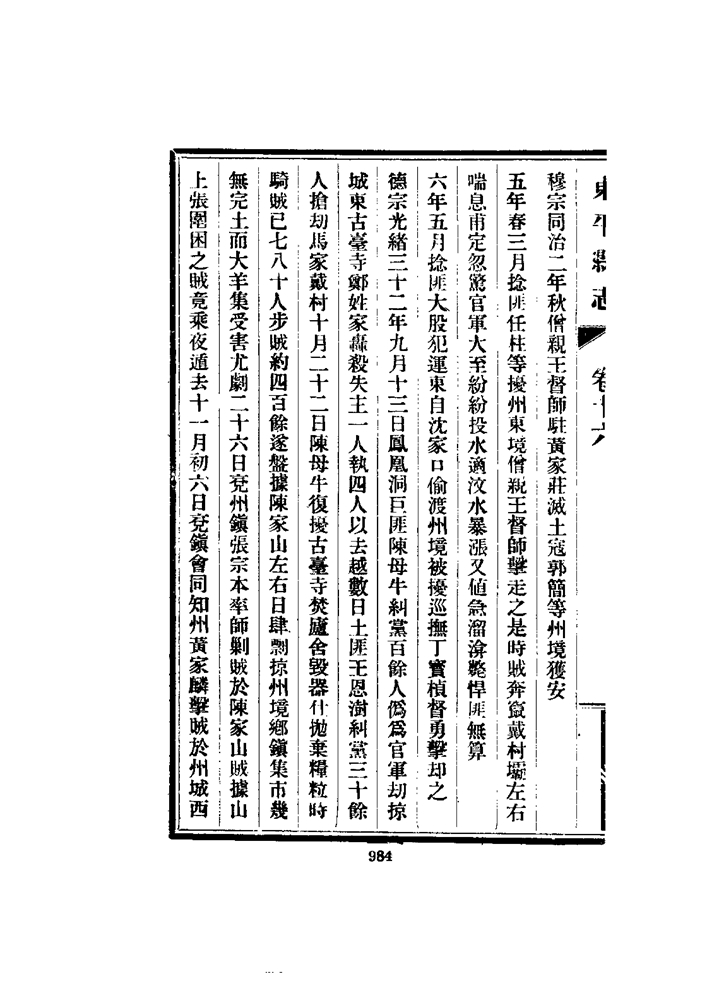 東平縣志 卷十六
穆宗同治二年秋僧親王督師駐黃家莊滅土寇郭簡等州境獲安
五年春三月捻匪任柱等擾州東境僧親王督師擊走之是時賊奔竄戴村壩左右
喘息甫定忽驚官軍大至紛紛投水適汶水暴漲又値急溜渰斃悍匪無算
六年五月捻匪大股犯運東自沈家口偷渡州境被擾巡撫丁寶楨督勇擊却之
德宗光緒三十二年九月十三日鳳凰洞巨匪陳母牛糾黨百餘人僞爲官軍劫掠
城東古臺寺鄭姓家轟殺失主一人執四人以去越數日土匪王恩澍糾黨三十餘
人搶劫馬家戴村十月二十二日陳母牛復擾古臺寺焚廬舍毀器什拋棄糧粒時
騎賊已七八十人步賊約四百餘遂盤據陳家山左右日肆剽掠州境鄉鎭集市幾
無完土而大羊集受害尤劇二十六日兗州鎭張宗本率師剿賊於陳家山賊據山
上張圍困之賊竟乘夜遁去十一月初六日兗鎭會同知州黃家麟擊賊於州城西
984